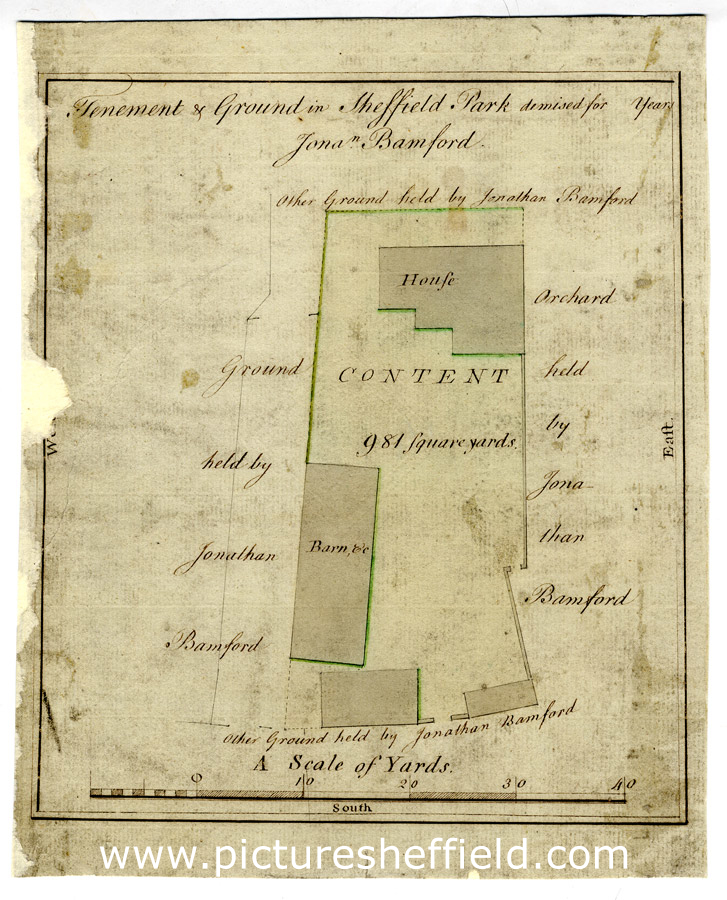 Tenement & Ground in Sheffield Park demised for Years
Jonaⁿ Bamford.
Other Ground held by Jonathan Bamford
Houſe
Orchard
held
by
Jona-
than
Bamford
Ground
held by
Jonathan
Bamford
CONTENT
981 ſquare yards.
Barn, &c
East.
Other Ground held by Jonathan Bamford
A Scale of Yards.
0 10 20 30 40
South
www.picturesheffield.com